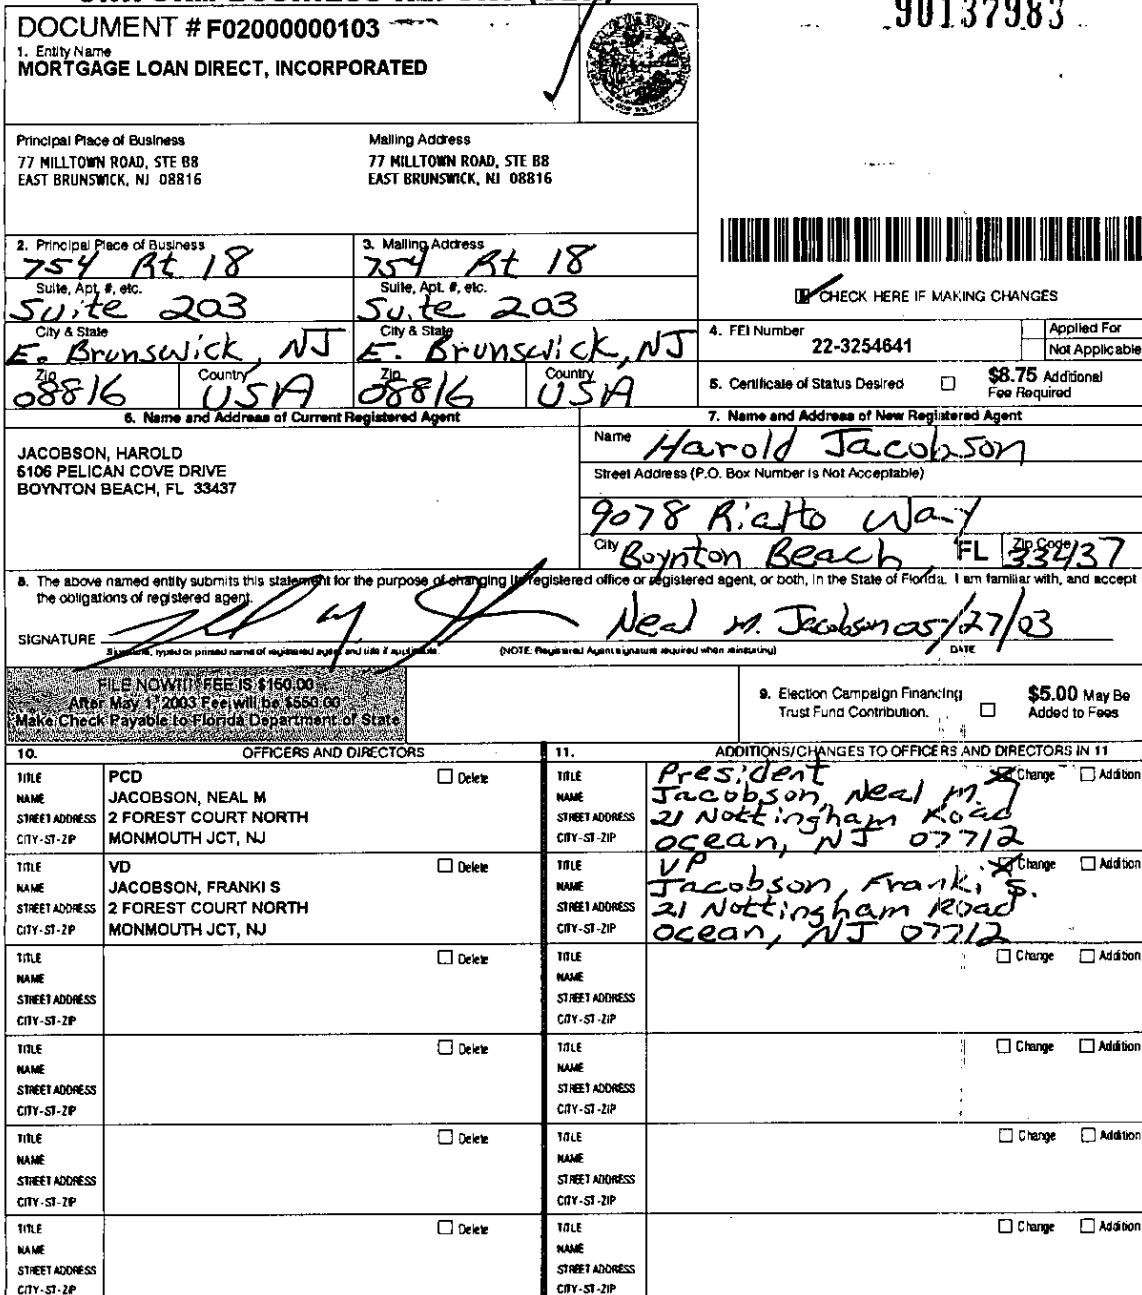 90137983
DOCUMENT # F02000000103
1. Entity Name
MORTGAGE LOAN DIRECT, INCORPORATED
Principal Place of Business
77 MILLTOWN ROAD, STE B8
EAST BRUNSWICK, NJ 08816
Mailing Address
77 MILLTOWN ROAD, STE B8
EAST BRUNSWICK, NJ 08816
2. Principal Place of Business
754 Rt 18
Suite, Apt. #, etc.
Suite 203
City & State
E. Brunswick, NJ
Zip
08816
Country
USA
3. Mailing Address
754 Rt 18
Suite, Apt. #, etc.
Suite 203
City & State
E. Brunswick, NJ
Zip
08816
Country
USA
CHECK HERE IF MAKING CHANGES
4. FEI Number
22-3254641
Applied For
Not Applicable
5. Certificate of Status Desired
$8.75 Additional
Fee Required
6. Name and Address of Current Registered Agent
JACOBSON, HAROLD
5106 PELICAN COVE DRIVE
BOYNTON BEACH, FL 33437
7. Name and Address of New Registered Agent
Name Harold Jacobson
Street Address (P.O. Box Number is Not Acceptable)
9078 Rialto Way
City Boynton Beach FL Zip Code 33437
8. The above named entity submits this statement for the purpose of changing its registered office or registered agent, or both, in the State of Florida. I am familiar with, and accept
the obligations of registered agent.
SIGNATURE Neal M. Jacobson 05/27/03
Signature, typed or printed name of registered agent and title if applicable. (NOTE: Registered Agent signature required when reinstating) DATE
FILE NOW!!! FEE IS $150.00
After May 1, 2003 Fee will be $550.00
Make Check Payable to Florida Department of State
9. Election Campaign Financing
Trust Fund Contribution.
$5.00 May Be
Added to Fees
10. OFFICERS AND DIRECTORS
11. ADDITIONS/CHANGES TO OFFICERS AND DIRECTORS IN 11
TITLE PCD Delete
NAME JACOBSON, NEAL M
STREET ADDRESS 2 FOREST COURT NORTH
CITY-ST-ZIP MONMOUTH JCT, NJ
TITLE President Change Addition
NAME Jacobson, Neal M.
STREET ADDRESS 21 Nottingham Road
CITY-ST-ZIP Ocean, NJ 07712
TITLE VD Delete
NAME JACOBSON, FRANKI S
STREET ADDRESS 2 FOREST COURT NORTH
CITY-ST-ZIP MONMOUTH JCT, NJ
TITLE VP Change Addition
NAME Jacobson, Franki S.
STREET ADDRESS 21 Nottingham Road
CITY-ST-ZIP Ocean, NJ 07712
TITLE Delete
NAME
STREET ADDRESS
CITY-ST-ZIP
TITLE Change Addition
NAME
STREET ADDRESS
CITY-ST-ZIP
TITLE Delete
NAME
STREET ADDRESS
CITY-ST-ZIP
TITLE Change Addition
NAME
STREET ADDRESS
CITY-ST-ZIP
TITLE Delete
NAME
STREET ADDRESS
CITY-ST-ZIP
TITLE Change Addition
NAME
STREET ADDRESS
CITY-ST-ZIP
TITLE Delete
NAME
STREET ADDRESS
CITY-ST-ZIP
TITLE Change Addition
NAME
STREET ADDRESS
CITY-ST-ZIP